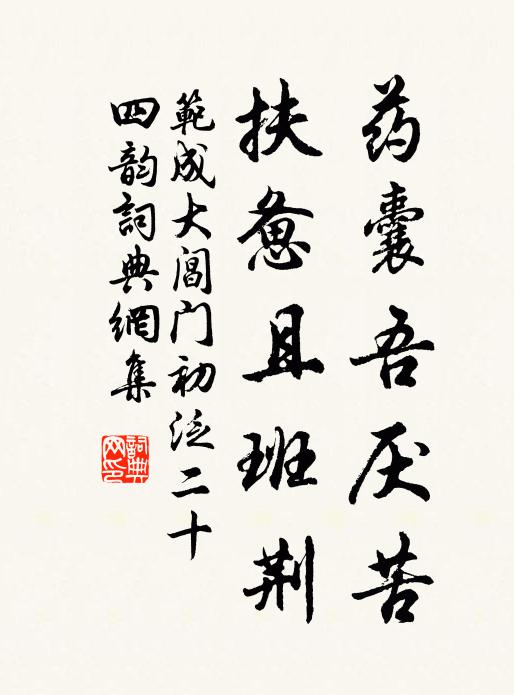 药囊吾厌苦
扶惫且班荆
範成大阊门初泛二十
四韵詞典網集
詞典
网印